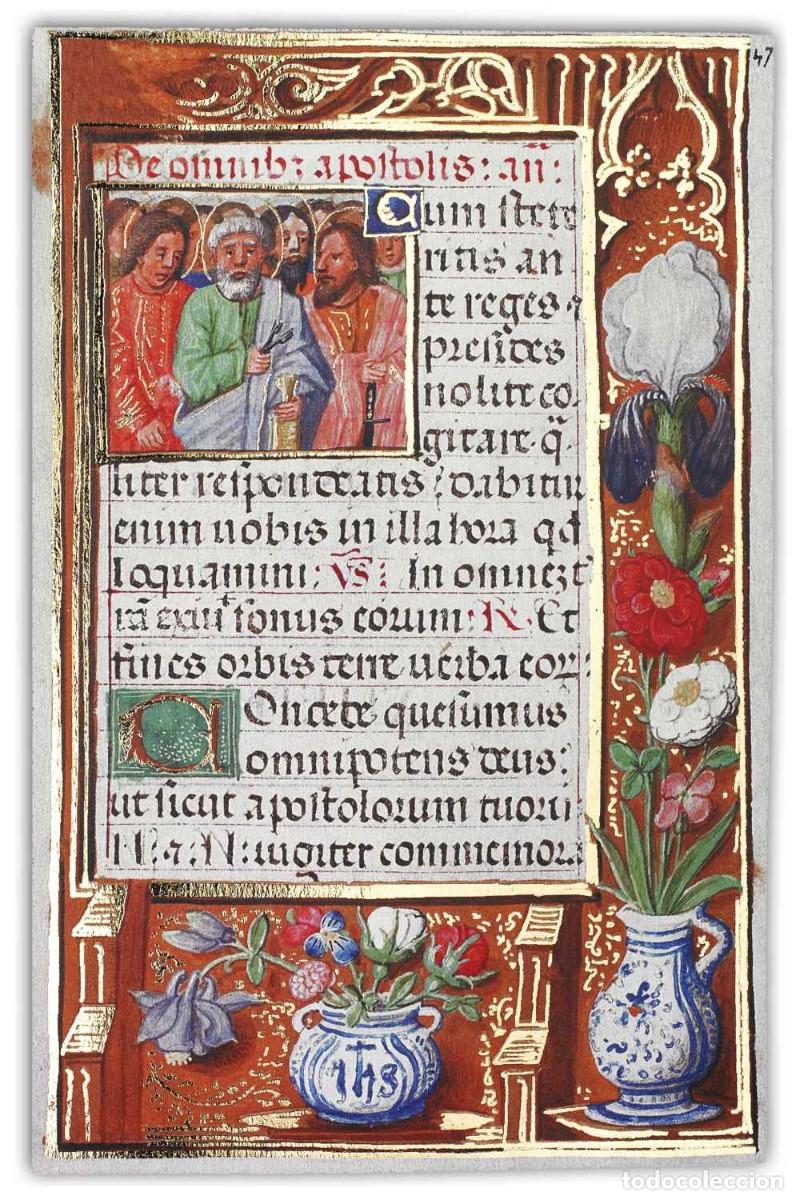 47
De omnib: apostolis: añ:
Cum stete
ritis an
te reges ⁊
presĩdes
nolite co
gitare q̃
liter respondeatis: dabitur
enim uobis in illa hora qd
loquamini: Vs: In omnez t
rã exiuit sonus eorum: R. Et
fines orbis terre uerba eor:
Concede quesumus
omnipotens deus:
ut sicut apostolorum tuorũ
N: ⁊: N: iugiter commemora
ihs
todocoleccion